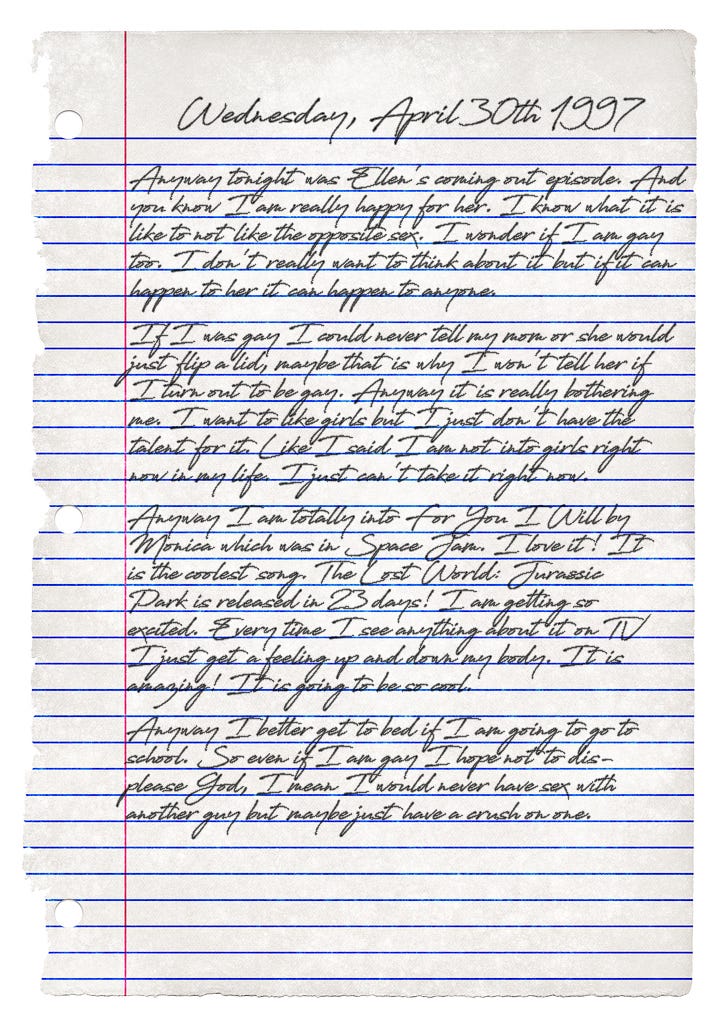 Wednesday, April 30th 1997
Anyway tonight was Ellen's coming out episode. And
you know I am really happy for her. I know what it is
like to not like the opposite sex. I wonder if I am gay
too. I don't really want to think about it but if it can
happen to her it can happen to anyone.
If I was gay I could never tell my mom or she would
just flip a lid, maybe that is why I won't tell her if
I turn out to be gay. Anyway it is really bothering
me. I want to like girls but I just don't have the
talent for it. Like I said I am not into girls right
now in my life. I just can't take it right now.
Anyway I am totally into For You I Will by
Monica which was in Space Jam. I love it! It
is the coolest song. The Lost World: Jurassic
Park is released in 23 days! I am getting so
excited. Every time I see anything about it on TV
I just get a feeling up and down my body. It is
amazing! It is going to be so cool.
Anyway I better get to bed if I am going to go to
school. So even if I am gay I hope not to dis-
please God, I mean I would never have sex with
another guy but maybe just have a crush on one.